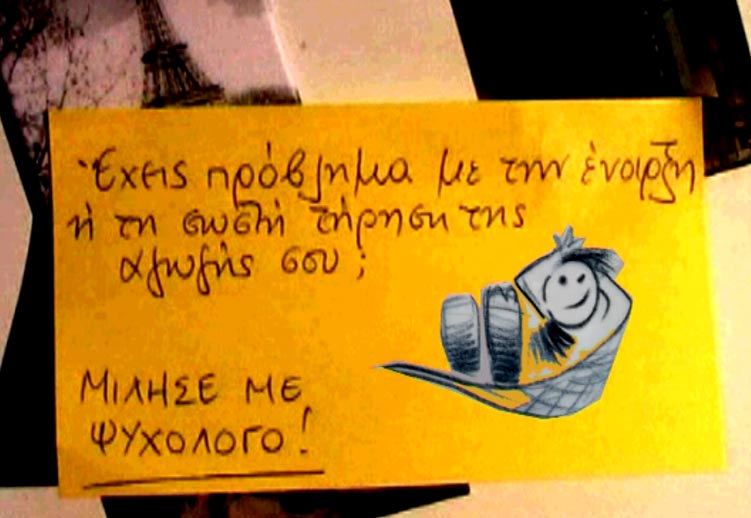 Έχεις πρόβλημα με την έναρξη
ή τη σωστή τήρηση της
αγωγής σου;
ΜΙΛΗΣΕ ΜΕ
ΨΥΧΟΛΟΓΟ!